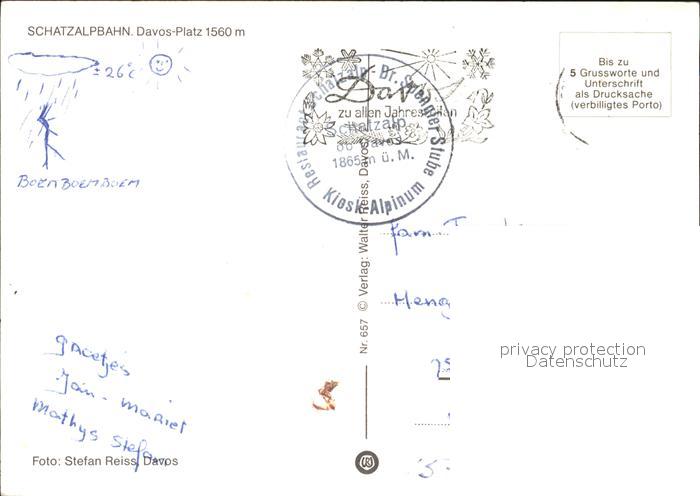 SCHATZALPBAHN. Davos-Platz 1560 m
± 26°C
BOEM BOEM BOEM
Restaurant Schatzalp - Dr. Spengler Stube
Kiosk-Alpinum
zu allen Jahreszeiten
Schatzalp
Davos
1865 m ü. M.
Bis zu
5 Grussworte und
Unterschrift
als Drucksache
(verbilligtes Porto)
Nr. 657 © Verlag: Walter Reiss, Davos
fam
Heng
privacy protection
Datenschutz
groetjes
Jan - Marriet
Mathys Stefan
Foto: Stefan Reiss, Davos